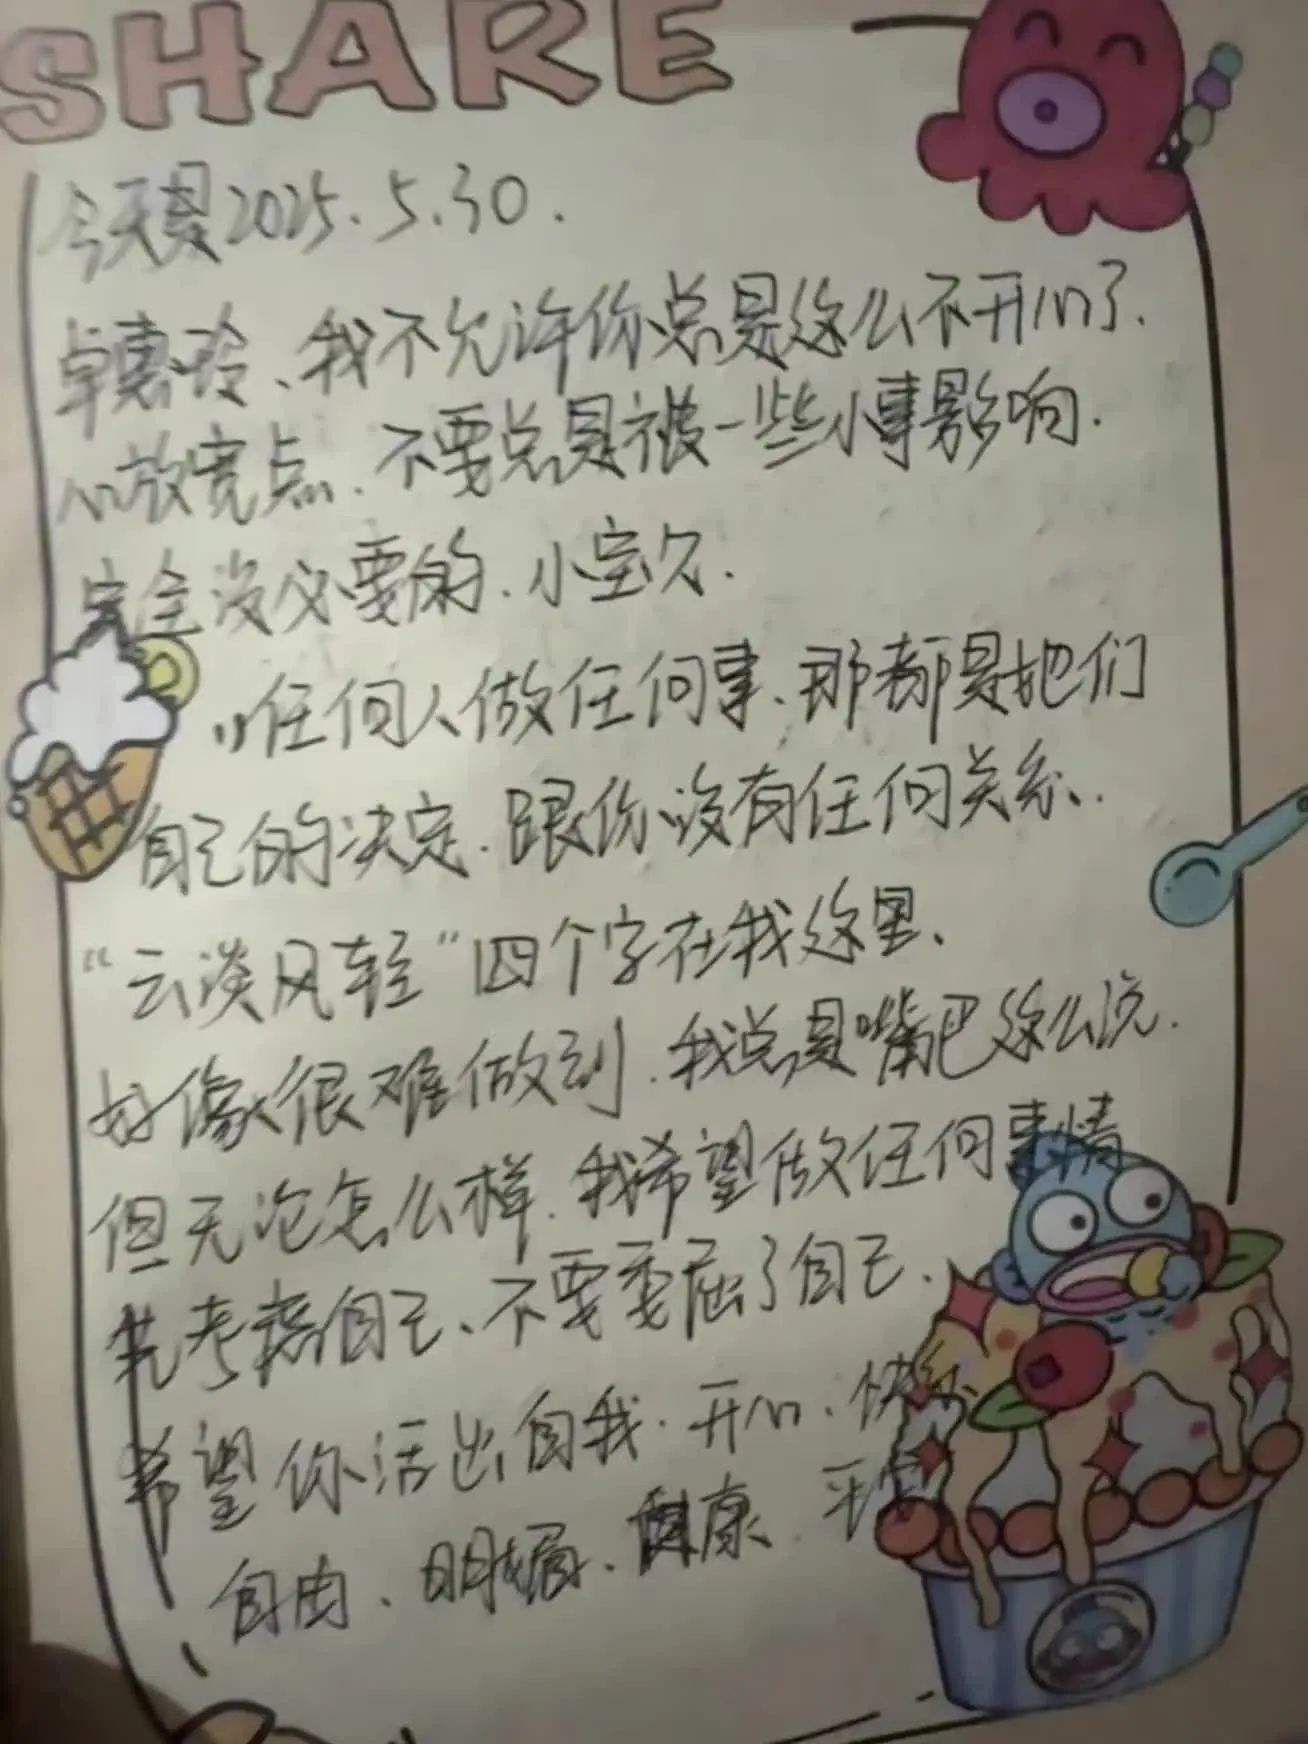 SHARE
今天是2025.5.30.
卓惠玲、我不允许你总是这么不开心了.
心放宽点、不要总是被一些小事影响.
完全没必要的、小宝贝.
"任何人做任何事、那都是她们
自己的决定、跟你没有任何关系、
"云淡风轻"四个字在我这里、
好像很难做到、我总是嘴巴这么说.
但无论怎么样、我希望做任何事情
先考虑自己、不要委屈了自己、
希望你活出自我、开心、快乐
自由、明媚、健康、平安